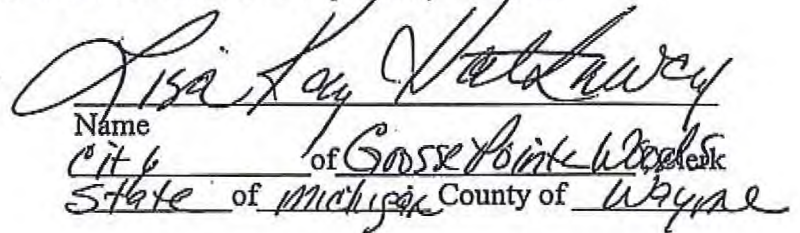 Lisa Kay Hathaway
Name
City of Grosse Pointe Woods, Clerk
State of Michigan County of Wayne